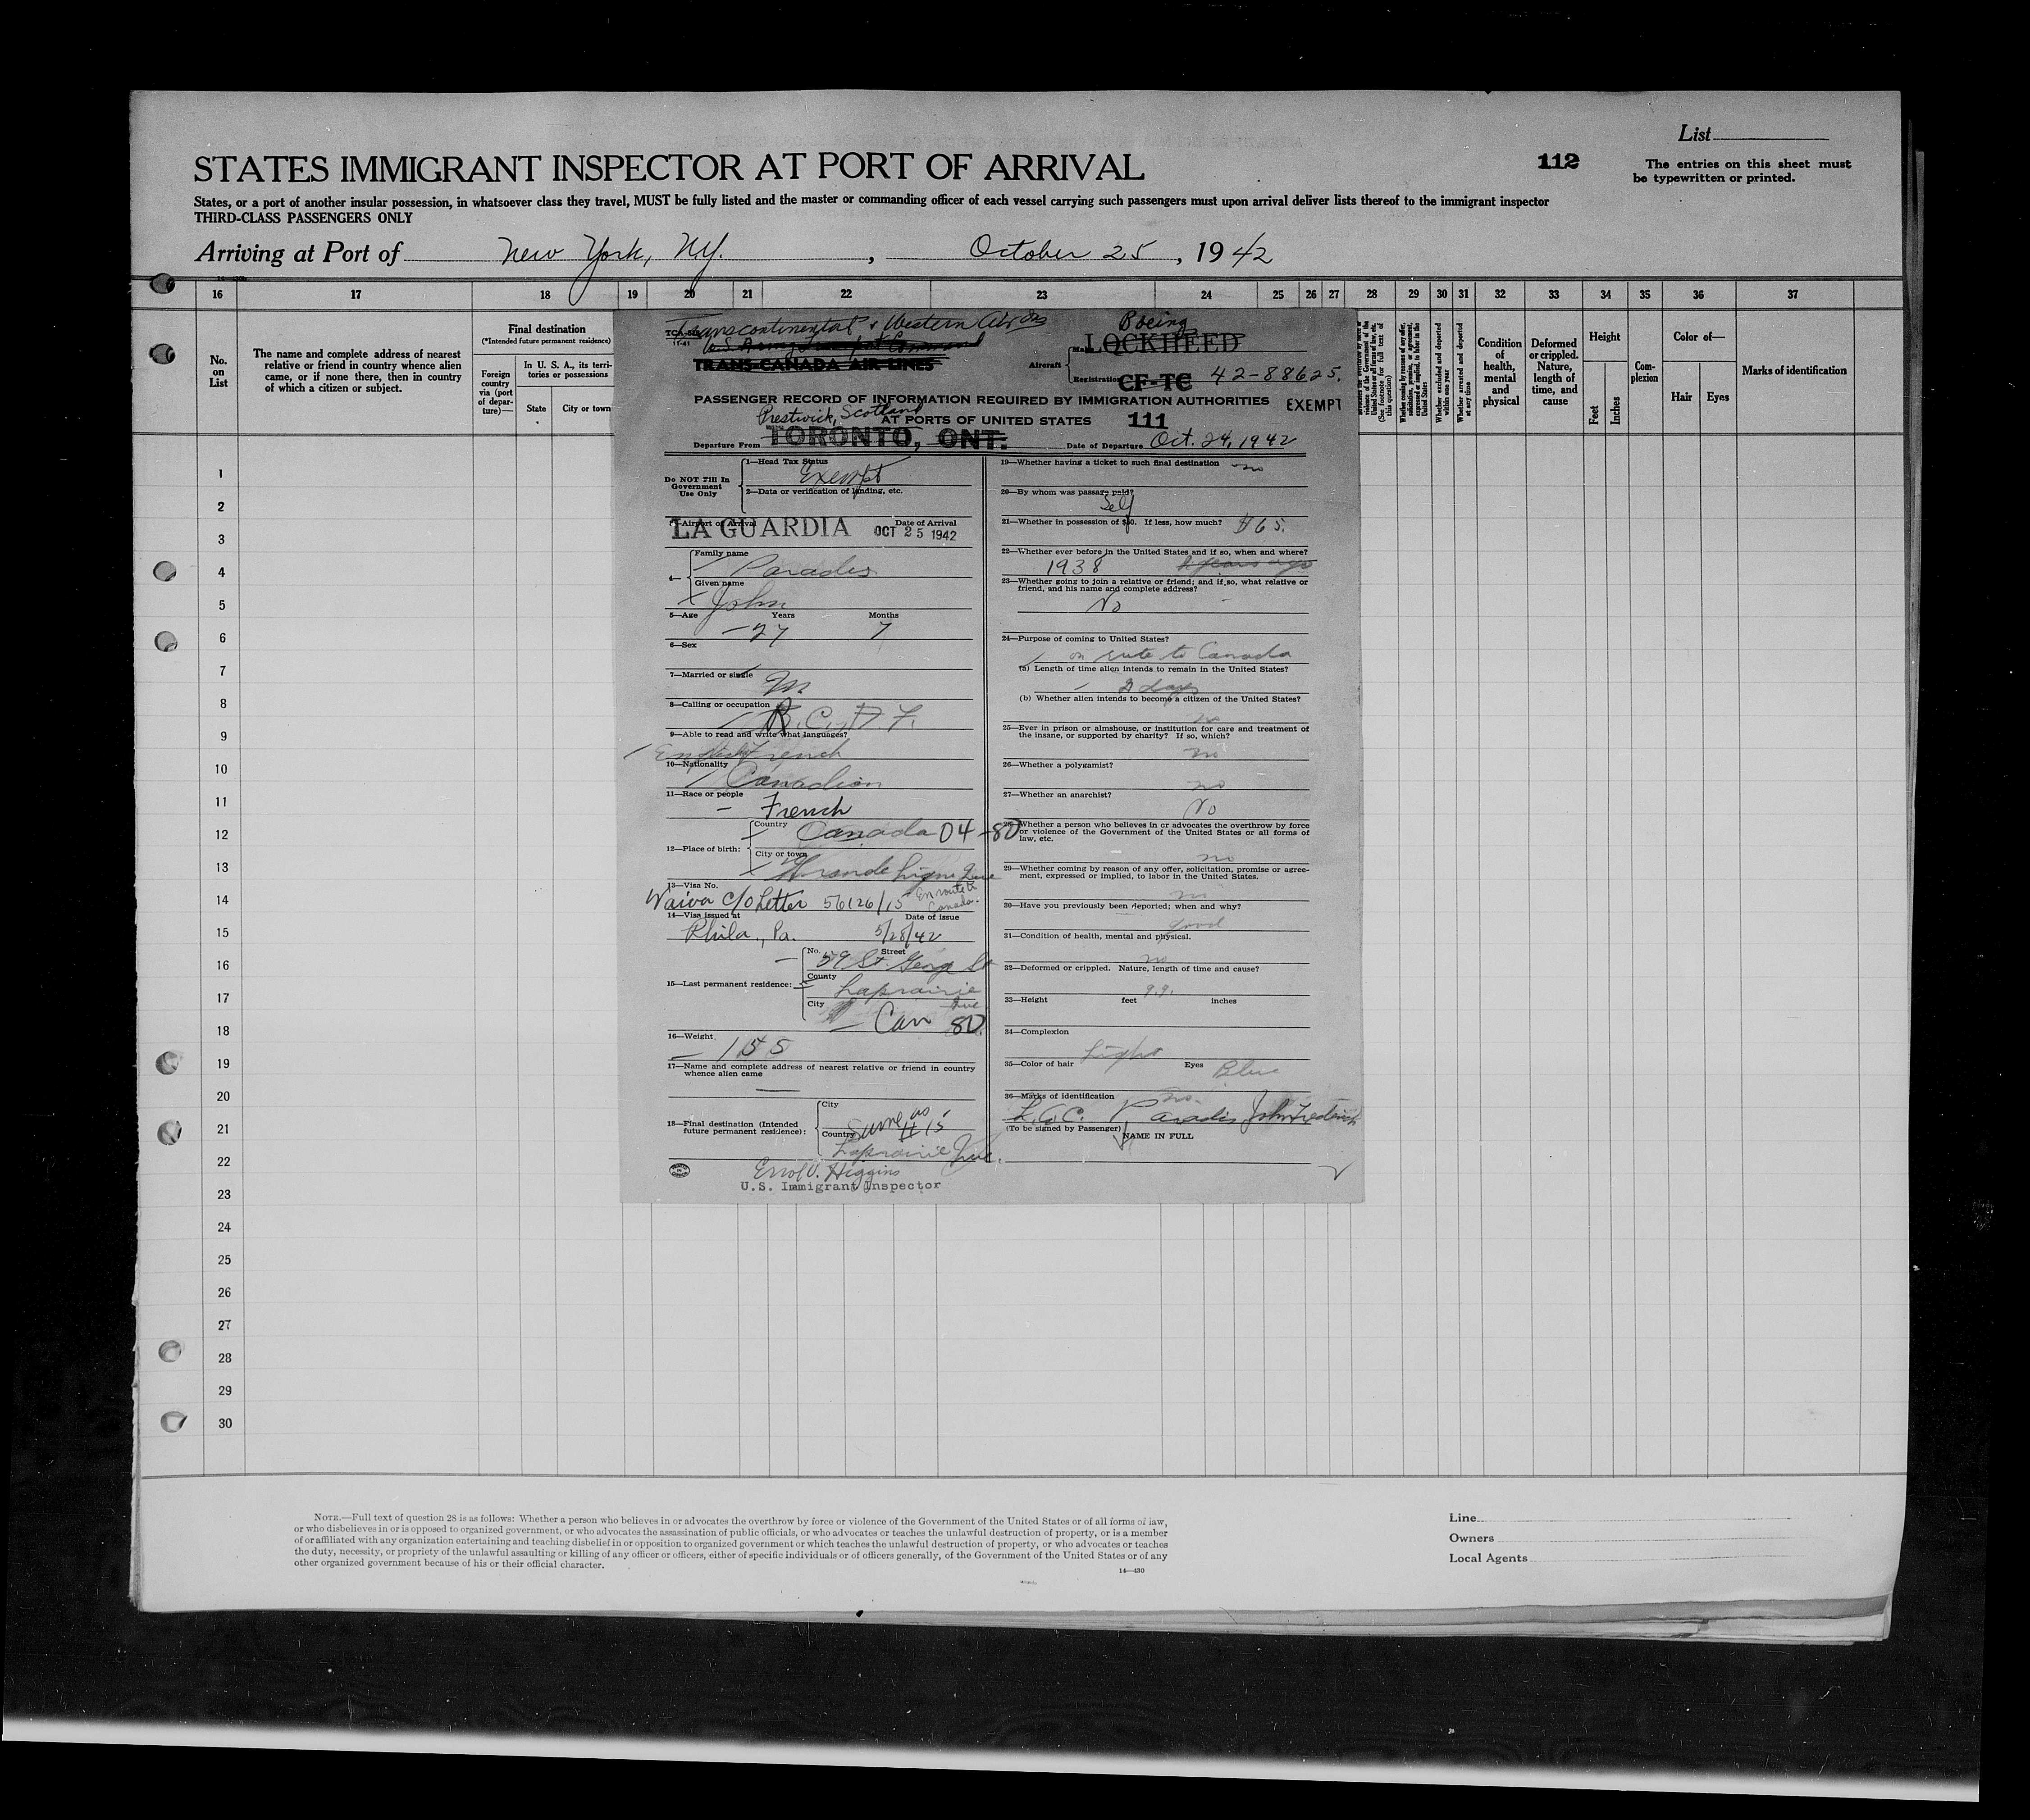 List
STATES IMMIGRANT INSPECTOR AT PORT OF ARRIVAL
112
The entries on this sheet must
be typewritten or printed.
States, or a port of another insular possession, in whatsoever class they travel, MUST be fully listed and the master or commanding officer of each vessel carrying such passengers must upon arrival deliver lists thereof to the immigrant inspector
THIRD-CLASS PASSENGERS ONLY
Arriving at Port of New York, N.Y. , October 25 , 1942
16 17 18 19 20 21 22 23 24 25 26 27 28 29 30 31 32 33 34 35 36 37
No.
on
List
The name and complete address of nearest
relative or friend in country whence alien
came, or if none there, then in country
of which a citizen or subject.
Final destination
(*Intended future permanent residence)
Foreign
country
via (port
of depar-
ture)—
In U. S. A., its terri-
tories or possessions
State
City or town
Condition
of
health,
mental
and
physical
Deformed
or crippled.
Nature,
length of
time, and
cause
Height
Feet
Inches
Com-
plexion
Color of—
Hair
Eyes
Marks of identification
Transcontinental & Western Air
11-41
U.S. Army Transport Command
TRANS-CANADA AIR LINES
Boeing
LOCKHEED
Aircraft
Registration CF-TC 42-88625.
PASSENGER RECORD OF INFORMATION REQUIRED BY IMMIGRATION AUTHORITIES
EXEMPT
Prestwick, Scotland
AT PORTS OF UNITED STATES
111
Departure From TORONTO, ONT.
Date of Departure Oct. 24, 1942
Do NOT Fill In
Government
Use Only
1—Head Tax Status
Exempt
2—Data or verification of landing, etc.
3—Airport of Arrival
Date of Arrival
LA GUARDIA OCT 25 1942
4—
Family name
Paradis
Given name
John
5—Age Years Months
27 7
6—Sex
7—Married or single
M
8—Calling or occupation
9—Able to read and write what languages?
English French
10—Nationality
Canadian
11—Race or people
French
12—Place of birth:
Country
Canada 04-80
City or town
Grande Ligne Que
13—Visa No.
Waiver c/o Letter 56126/15 En route to Canada.
14—Visa issued at Date of issue
Phila., Pa. 5/28/42
15—Last permanent residence:
No. Street
59 St. George St
County
Laprairie
City
Que
Can 80
16—Weight
155
17—Name and complete address of nearest relative or friend in country
whence alien came
18—Final destination (Intended
future permanent residence):
City
Same as
Country
# 15
Laprairie Que.
Errol V. Higgins
U.S. Immigrant Inspector
19—Whether having a ticket to such final destination
no
20—By whom was passage paid?
Self
21—Whether in possession of $50. If less, how much? $65.
22—Whether ever before in the United States and if so, when and where?
1938 4 years ago
23—Whether going to join a relative or friend; and if so, what relative or
friend, and his name and complete address?
No
24—Purpose of coming to United States?
on rute to Canada
(a) Length of time alien intends to remain in the United States?
2 days
(b) Whether alien intends to become a citizen of the United States?
no
25—Ever in prison or almshouse, or institution for care and treatment of
the insane, or supported by charity? If so, which?
no
26—Whether a polygamist?
no
27—Whether an anarchist?
No
28—Whether a person who believes in or advocates the overthrow by force
or violence of the Government of the United States or all forms of
law, etc.
no
29—Whether coming by reason of any offer, solicitation, promise or agree-
ment, expressed or implied, to labor in the United States.
no
30—Have you previously been deported; when and why?
good
31—Condition of health, mental and physical.
no
32—Deformed or crippled. Nature, length of time and cause?
33—Height feet inches
34—Complexion
Light
35—Color of hair Eyes
Blue
36—Marks of identification
no.
Paradis John Frederick
(To be signed by Passenger)
NAME IN FULL
1
2
3
4
5
6
7
8
9
10
11
12
13
14
15
16
17
18
19
20
21
22
23
24
25
26
27
28
29
30
NOTE.—Full text of question 28 is as follows: Whether a person who believes in or advocates the overthrow by force or violence of the Government of the United States or of all forms of law,
or who disbelieves in or is opposed to organized government, or who advocates the assassination of public officials, or who advocates or teaches the unlawful destruction of property, or is a member
of or affiliated with any organization entertaining and teaching disbelief in or opposition to organized government or which teaches the unlawful destruction of property, or who advocates or teaches
the duty, necessity, or propriety of the unlawful assaulting or killing of any officer or officers, either of specific individuals or of officers generally, of the Government of the United States or of any
other organized government because of his or their official character.
14—430
Line
Owners
Local Agents